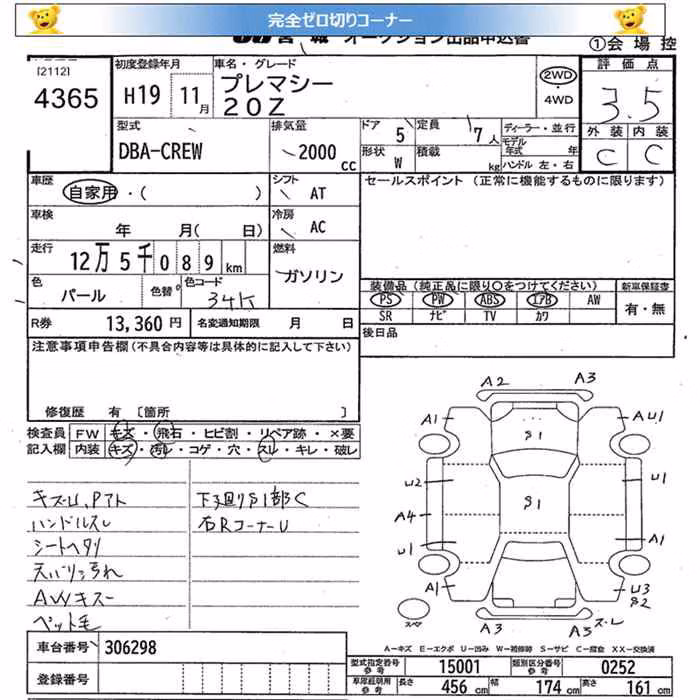 完全ゼロ切りコーナー
JU宮城 オークション出品申込書 ①会場控
[2112]
4365
初度登録年月 H19 11月
車名・グレード プレマシー 20Z
2WD・4WD
評価点 3.5
外装 内装
C C
型式 DBA-CREW
排気量 2000cc
ドア 5
定員 7人
形状 W
積載 kg
ディーラー・並行
モデル年式 年
ハンドル 左・右
車歴 自家用・( )
シフト AT
セールスポイント (正常に機能するものに限ります)
車検 年 月( 日)
冷房 AC
走行 12万5千089km
燃料 ガソリン
色 パール
色替
色コード 34K
装備品(純正品に限り○をつけてください)
新車保証書 有・無
PS PW ABS エアB AW
SR ナビ TV カワ
R券 13,360円
名変通知期限 月 日
後日品
注意事項申告欄(不具合内容等は具体的に記入して下さい)
修復歴 有 [箇所 ]
検査員記入欄
FW キズ・飛石・ヒビ割・リペア跡・×要
内装 キズ・汚レ・コゲ・穴・スレ・キレ・破レ
キズU,Pアト
ハンドルスレ
シートヘタリ
天バリ汚れ
AWキズー
ペット毛
下廻りS1部C
右RコーナーU
A2 A3
A1 AU1
S1
U2 U1
S1
A4
U1 A1
A1 U3
S2
A3 スレ
スペア
A-キズ E-エクボ U-凹み W-補修跡 S-サビ C-腐食 XX-交換済
車台番号 306298
登録番号
型式指定番号 参考 15001
類別区分番号 参考 0252
車庫証明用 参考 長さ 456cm 幅 174cm 高さ 161cm